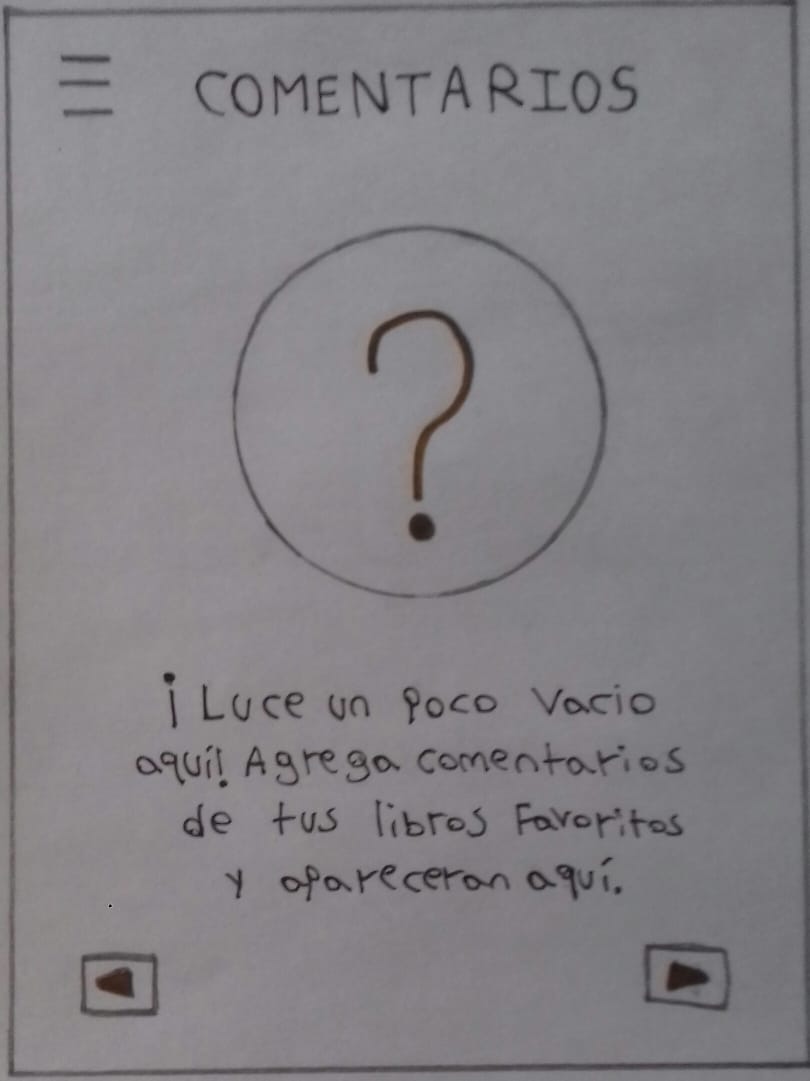 COMENTARIOS
?
¡Luce un poco vacio
aquí! Agrega comentarios
de tus libros Favoritos
y apareceran aquí.